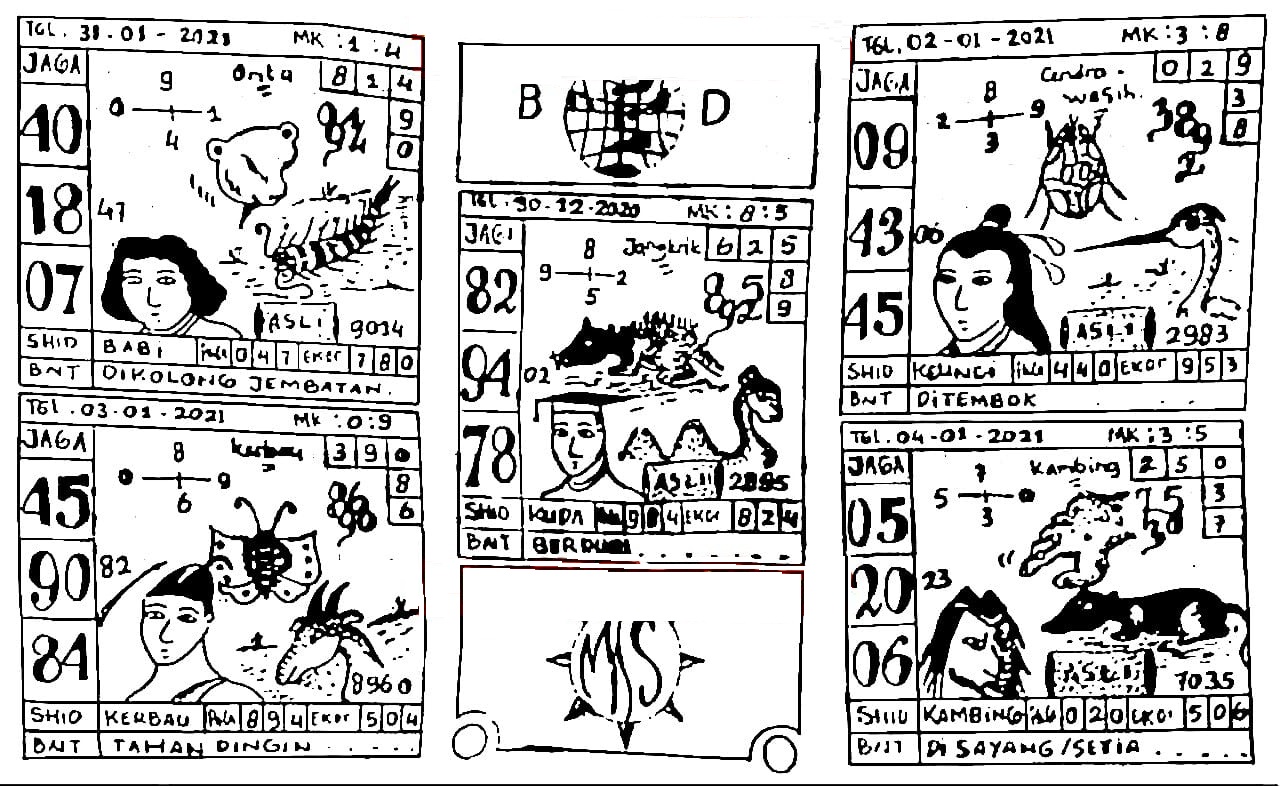 TGL. 31-01-2021 MK:1:4
JAGA
9
Onta 8 1 4
0 1
4
40
94
9
0
18
47
07
ASLI 9014
SHIO BABI 0 4 7 EKOR 7 8 0
BNT DIKOLONG JEMBATAN.
TGL. 03-01-2021 MK:0:9
JAGA
8
Kerbau 3 9 0
0 9
6
45
86
8
6
90
82
84
8960
SHIO KERBAU Pala 8 9 4 EKOR 5 0 4
BNT TAHAN DINGIN . . . . .
B D
TGL. 30-12-2020 MK:8:5
JAGA
8
Jangkrik 6 2 5
9 2
5
82
85
892
8
9
94
02
78
ASLI 2885
SHIO KUDA EKOR 8 2 4
BNT
MS
TGL. 02-01-2021 MK:3:8
JAGA
8
Cendra-
wasih.
0 2 9
2 9
3
09
389
2
3
8
43
06
45
ASLI 2983
SHIO KELINCI 4 4 0 EKOR 9 5 3
BNT DITEMBOK
TGL. 04-01-2021 MK:3:5
JAGA
7
Kambing 2 5 0
5 0
3
05
75
3
7
20
23
06
ASLI 7035
SHIO KAMBING 0 2 0 EKOR 5 0 6
BNT DI SAYANG/SETIA . . . . .